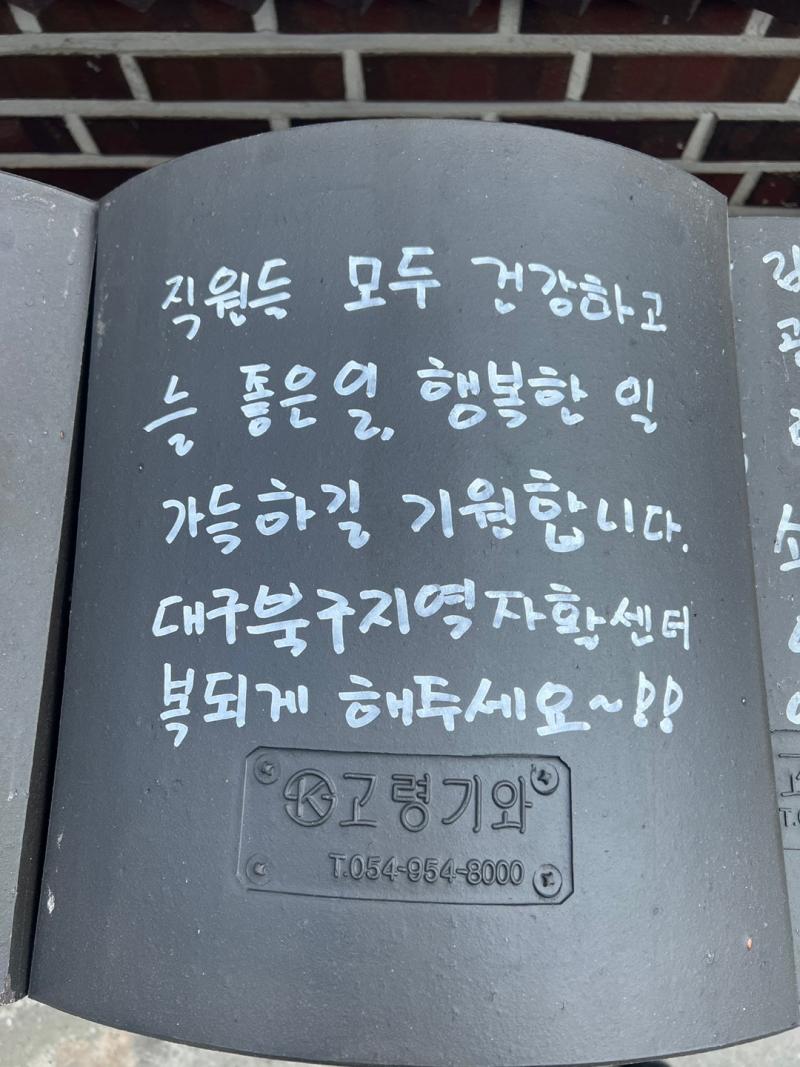 직원들 모두 건강하고
늘 좋은일, 행복한 일
가득하길 기원합니다.
대구북구지역자활센터
복되게 해주세요~!!
K 고령기와
T.054-954-8000